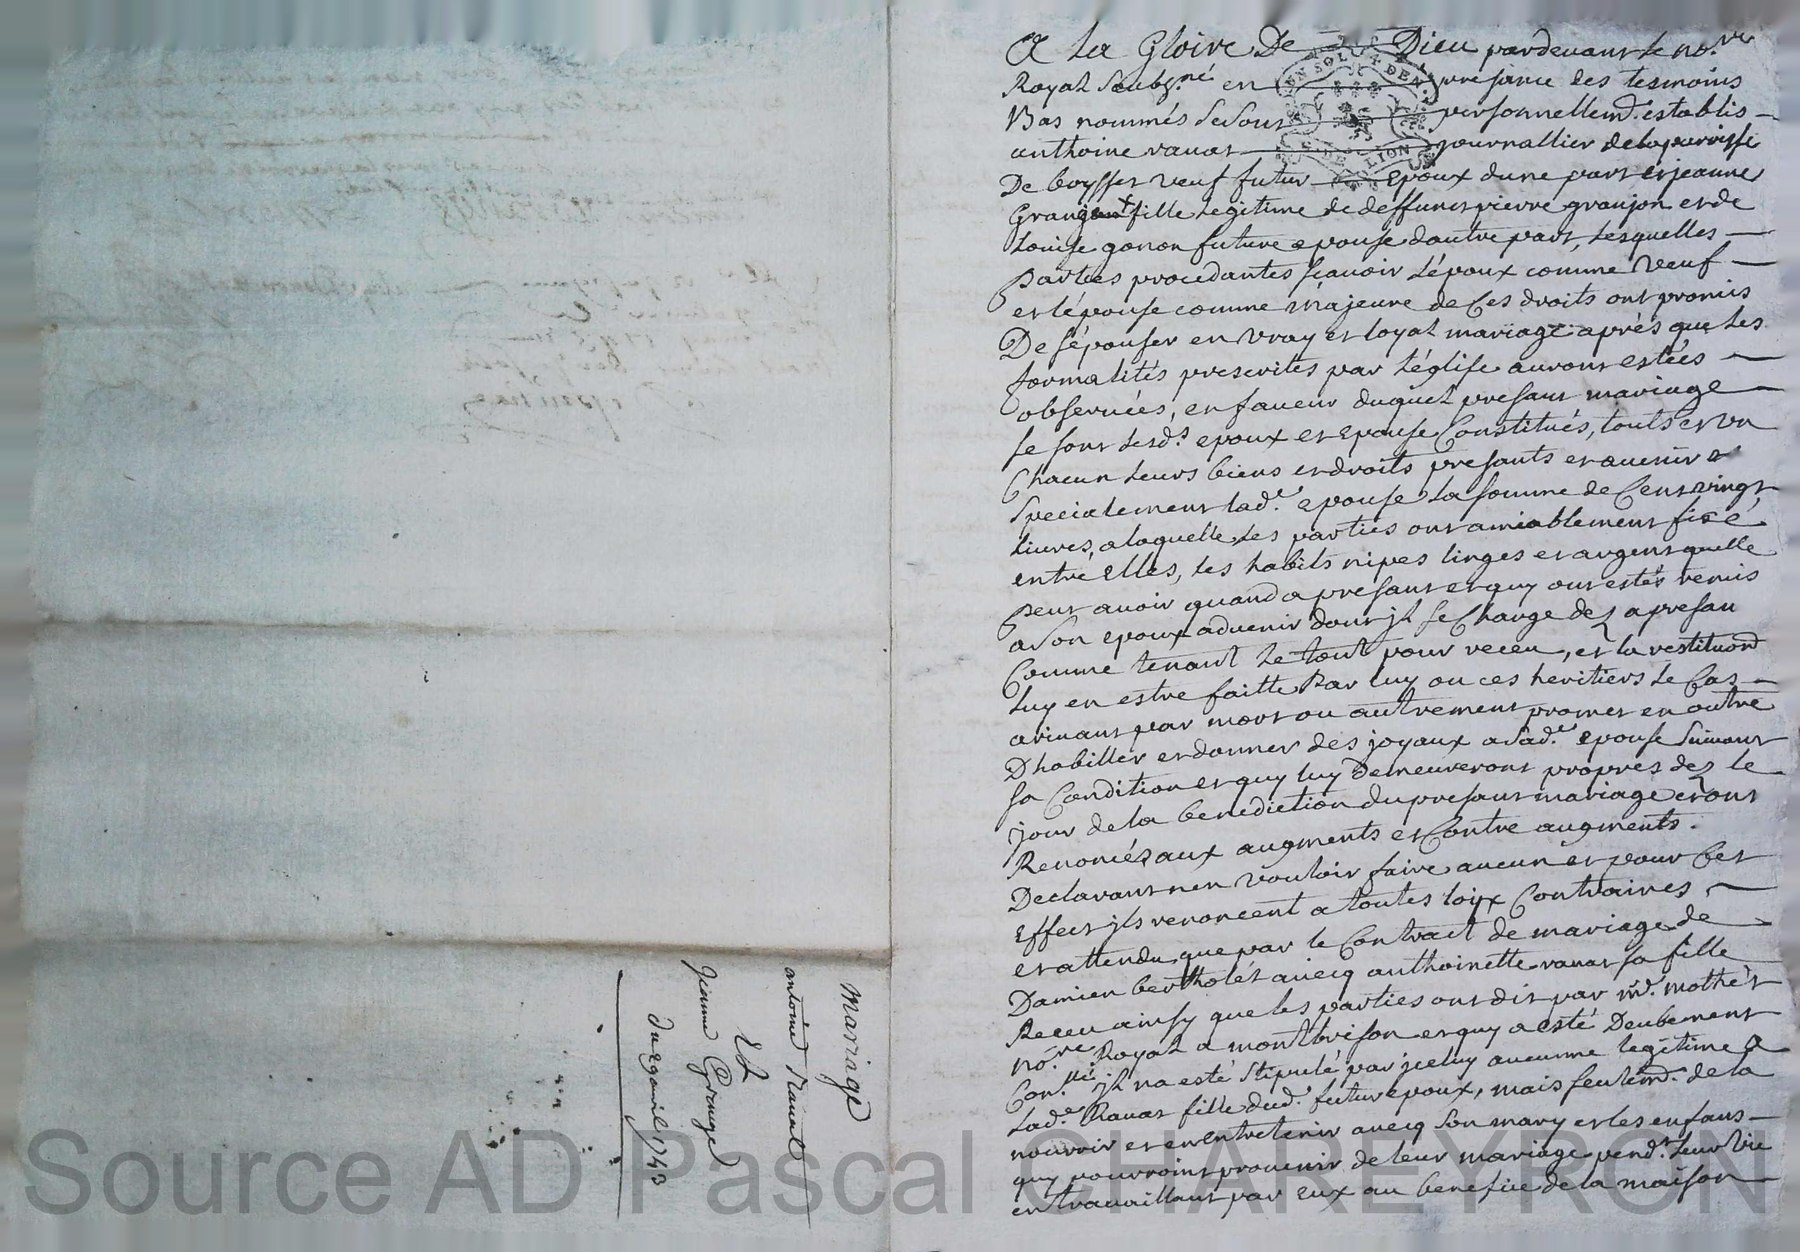 A La Gloire De Dieu pardevant Le no.re
Royal Soubz.né en presance des tesmoins
Bas nommés Se Sont personnellemt. establis
anthoine ravat journallier de la parroisse
De boysset veuf futur Epoux dune part et jeanne
Grang fille Legitime de deffunct pierre granjon et de
Louise gonon future epouse dautre part, Lesquelles
Parties procedantes sçauoir L'époux comme Veuf
et lépouse comme Majeure de Ces droits ont promis
De sépouser en vray et loyal mariage après que Les
formalités prescrites par L'église auront estées
observées, en faueur duquel presant mariage
se sont Lesd.s epoux et Epouse Constitués, touts et un
Chacun Leurs biens et droits presants et auenir &
Specialement lad.e epouse La somme de Cent vingt
Liures, a laquelle Les parties ont amiablement fixé
entre Elles, Les habits nipes linges et argent quelle
Peut auoir quand a presant et quy ont estés remis
a Son epoux aduenir dont jl se Charge dez a presan
Comme tenant Le tout pour receu, et la restituon
Luy en estre faitte Par Luy ou ces heritiers Le Cas
ariuant par mort ou autrement promet en outre
D'habiller et donner des joyaux a Sad.e epouse Suiuant
sa Condition et quy luy Demeureront propres dez le
jour de la benediction du presant mariage et ont
Renoncés aux augments et Contre augments.
Declarant nen Vouloir faire aucun et pour Cet
Effect jls renoncent a toutes loix Contraires
et attendu que par le Contract de mariage de
Damien bertholet auecq anthoinette ravat sa fille
Receu ainsy que les parties ont dit par me. mothét
no.re Royal a montbrison et quy a esté Deubement
Con.llé jl na esté Stipulé par jceluy aucunne legitime a
Lad.e Ravat fille dud. futur epoux, mais seulemt. de la
nourrir et en entretenir avecq Son mary et les enfans
quy pourroint prouenir de leur mariage pend.t Leur Vie
en travaillant par Eux au benefice de la maison
Mariage
antoine Rauat
Et
Jeanne Grangé
Du 29 auril 1743
EN SOL DE
DE LION
Source AD Pascal CHAREYRON